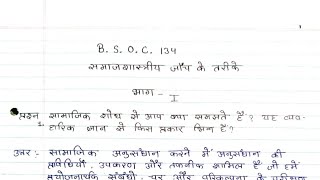 B.S.O.C. 134
समाजशास्त्रीय जाँच के तरीके
भाग - I
प्रश्न सामाजिक शोध से आप क्या समझते हैं? यह व्यव-
1 हारिक ज्ञान से किस प्रकार भिन्न है?
उत्तर:- सामाजिक अनुसंधान करने में अनुसंधान की
प्रविधियाँ, उपकरण और तकनीक शामिल हैं जो हमें
प्रयोगात्मक संबंधी चर और परिकल्पना के परीक्षण